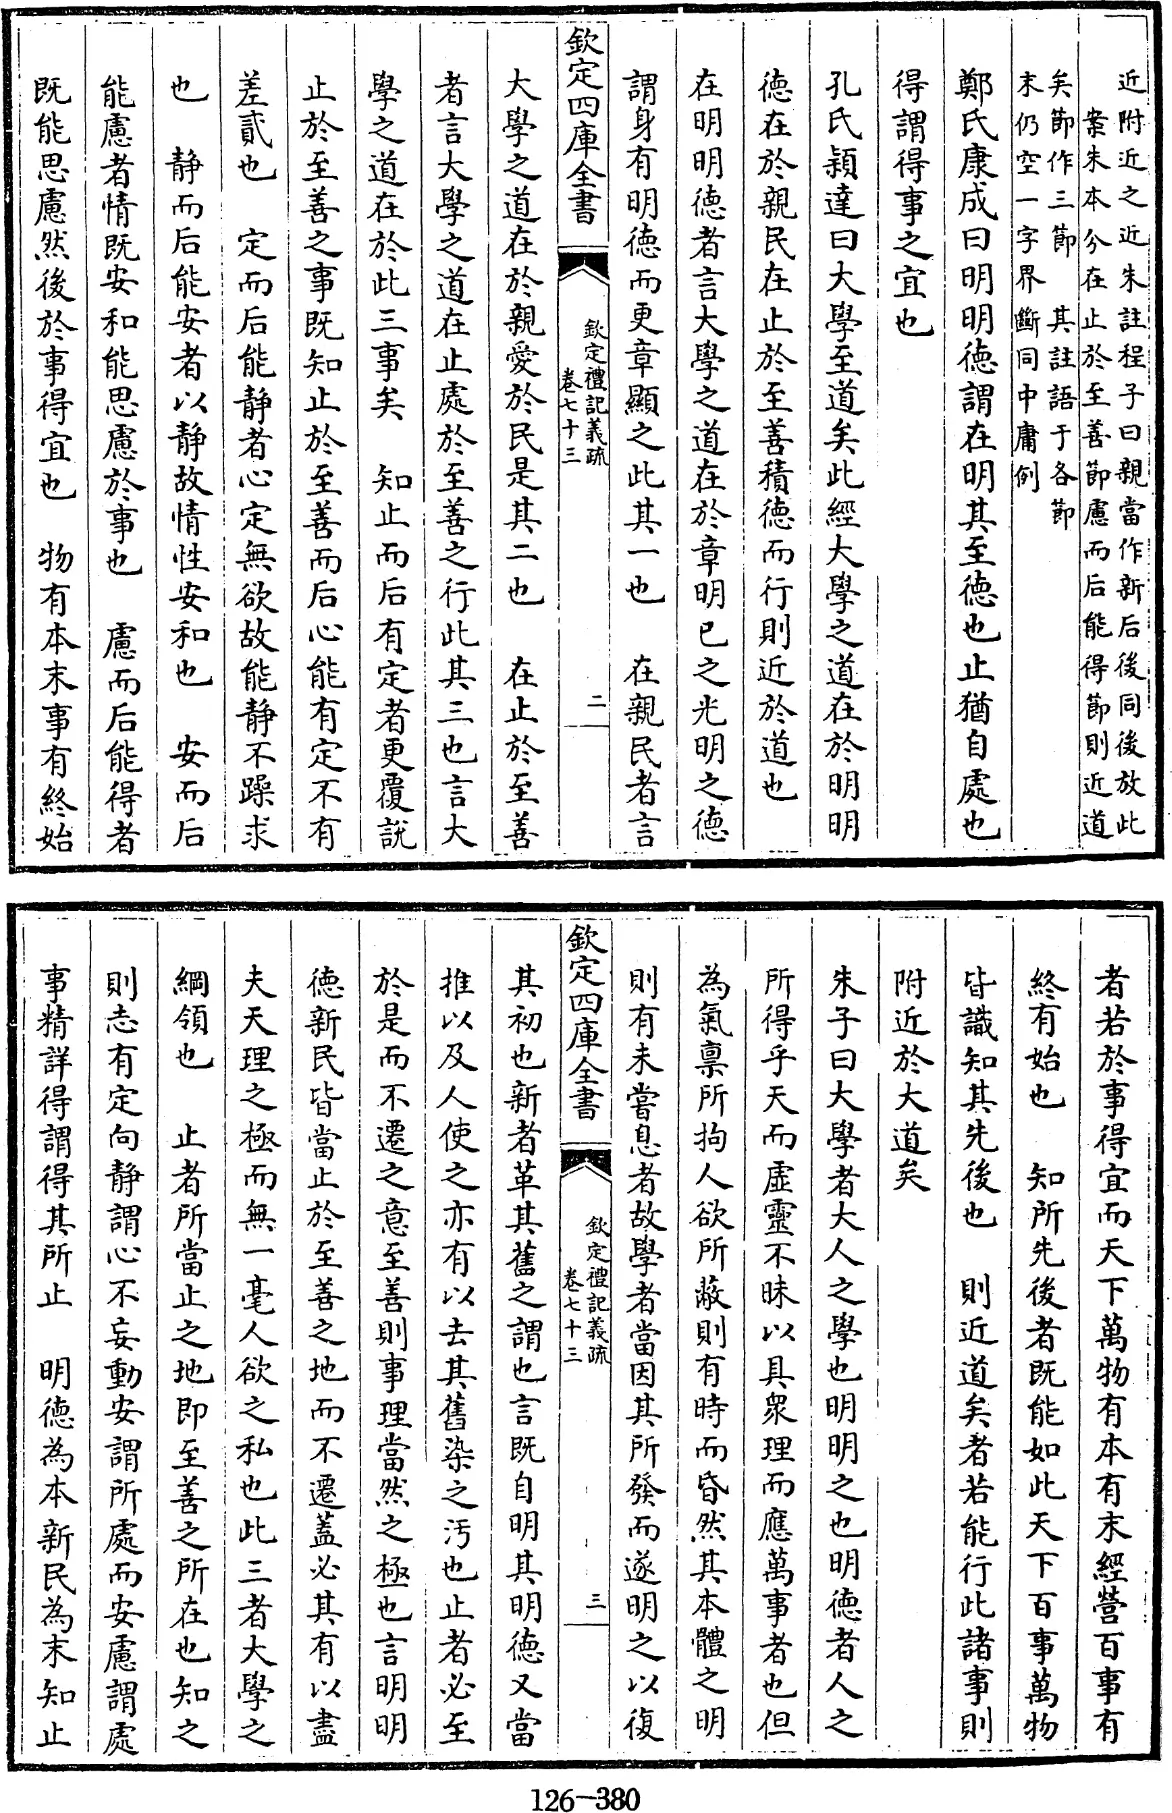 近附近之近朱註程子曰親當作新后後同後放此
案朱本分在止於至善節慮而后能得節則近道
矣節作三節　其註語于各節
末仍空一字界斷同中庸例
鄭氏康成曰明明德謂在明其至德也止猶自處也
得謂得事之宜也
孔氏穎達曰大學至道矣此經大學之道在於明明
德在於親民在止於至善積德而行則近於道也
在明明德者言大學之道在於章明已之光明之德
謂身有明德而更章顯之此其一也　在親民者言
欽定四庫全書
欽定禮記義疏
卷七十三
二
大學之道在於親愛於民是其二也　在止於至善
者言大學之道在止處於至善之行此其三也言大
學之道在於此三事矣　知止而后有定者更覆說
止於至善之事既知止於至善而后心能有定不有
差貳也　定而后能靜者心定無欲故能靜不躁求
也　靜而后能安者以靜故情性安和也　安而后
能慮者情既安和能思慮於事也　慮而后能得者
既能思慮然後於事得宜也　物有本末事有終始
者若於事得宜而天下萬物有本有末經營百事有
終有始也　知所先後者既能如此天下百事萬物
皆識知其先後也　則近道矣者若能行此諸事則
附近於大道矣
朱子曰大學者大人之學也明明之也明德者人之
所得乎天而虛靈不昧以具衆理而應萬事者也但
為氣稟所拘人欲所蔽則有時而昏然其本體之明
則有未嘗息者故學者當因其所發而遂明之以復
欽定四庫全書
欽定禮記義疏
卷七十三
三
其初也新者革其舊之謂也言既自明其明德又當
推以及人使之亦有以去其舊染之汚也止者必至
於是而不遷之意至善則事理當然之極也言明明
德新民皆當止於至善之地而不遷蓋必其有以盡
夫天理之極而無一毫人欲之私也此三者大學之
綱領也　止者所當止之地即至善之所在也知之
則志有定向靜謂心不妄動安謂所處而安慮謂處
事精詳得謂得其所止　明德為本新民為末知止
126-380